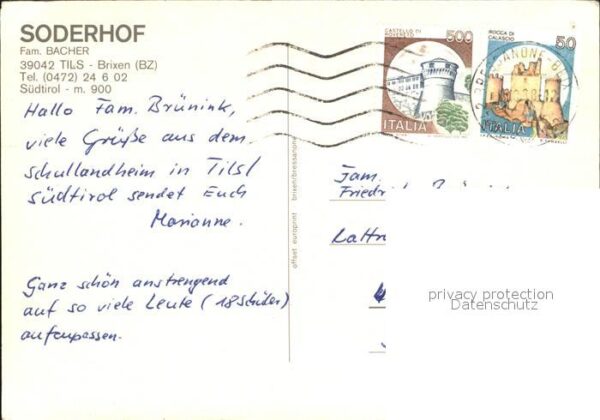 SODERHOF
Fam. BACHER
39042 TILS - Brixen (BZ)
Tel. (0472) 24 6 02
Südtirol - m. 900
Hallo Fam. Brünink,
viele Grüße aus dem
schullandheim in Tils/
südtirol sendet Euch
Marianne.
Ganz schön anstrengend
auf so viele Leute (18 Schüler)
aufzupassen.
offset europrint brixen/bressanone
CASTELLO DI
ROVERETO
500
ITALIA
ROCCA DI
CALASCIO
50
ITALIA
Fam.
privacy protection
Datenschutz